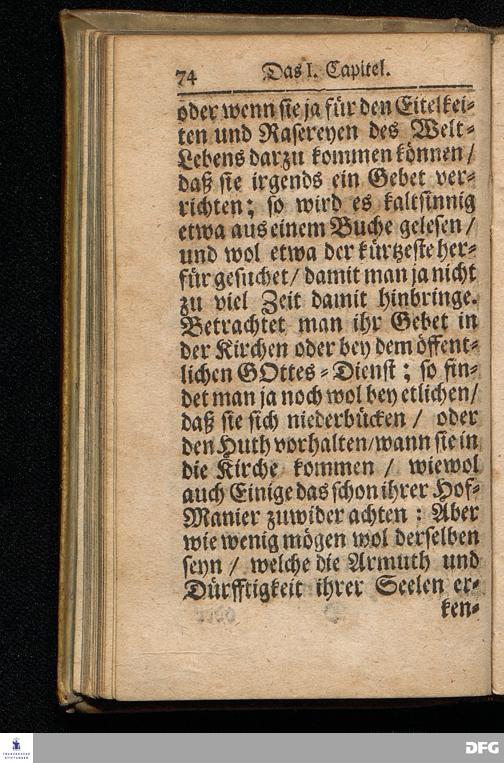 74 Das I. Capitel.
oder wenn sie ja für den Eitelkei-
ten und Rasereyen des Welt-
Lebens darzu kommen können /
daß sie irgends ein Gebet ver-
richten; so wird es kaltsinnig
etwa aus einem Buche gelesen /
und wol etwa der kürtzeste her-
für gesuchet / damit man ja nicht
zu viel Zeit damit hinbringe.
Betrachtet man ihr Gebet in
der Kirchen oder bey dem öffent-
lichen GOttes-Dienst; so fin-
det man ja noch wol bey etlichen /
daß sie sich niederbücken / oder
den Huth vorhalten / wann sie in
die Kirche kommen / wiewol
auch Einige das schon ihrer Hof-
Manier zuwider achten: Aber
wie wenig mögen wol derselben
seyn / welche die Armuth und
Dürfftigkeit ihrer Seelen er-
ken-
FRANCKESCHE
STIFTUNGEN
DFG